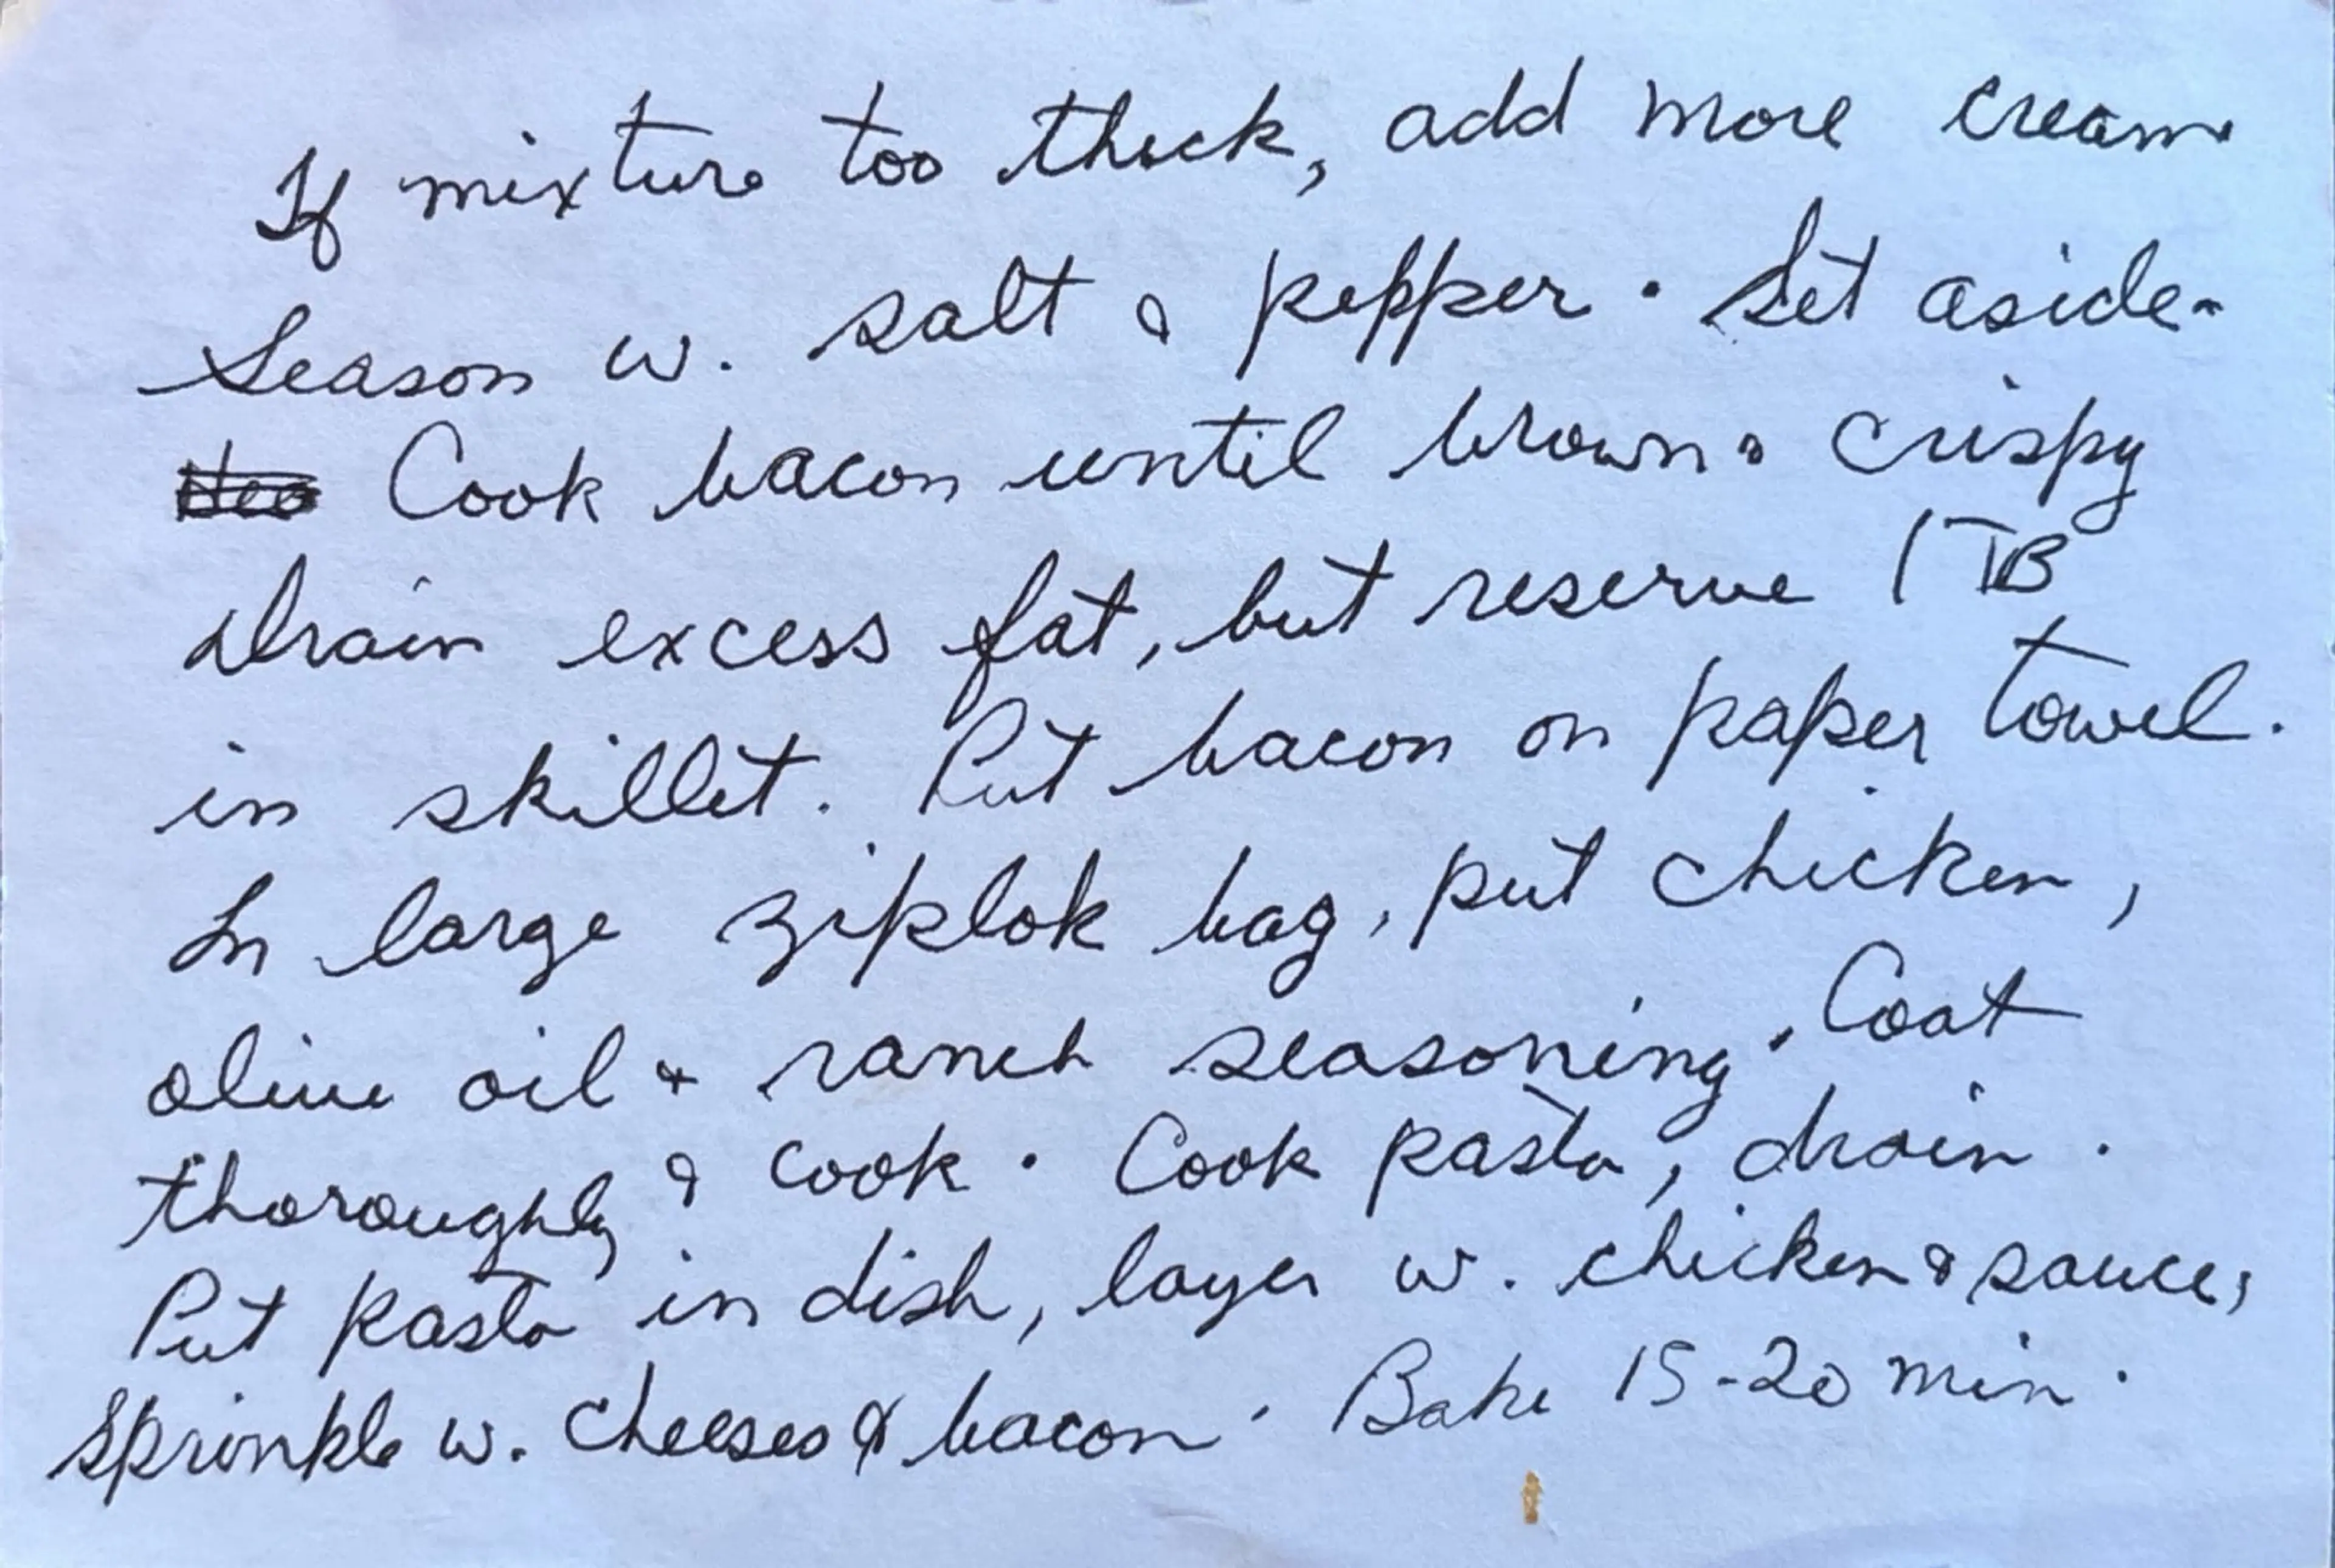 If mixture too thick, add more cream.
Season w. salt & pepper. Set aside.
Cook bacon until brown & crispy
Drain excess fat, but reserve 1 TB
in skillet. Put bacon on paper towel.
In large ziplok bag, put chicken,
olive oil & ranch seasoning. Coat
thoroughly & cook. Cook pasta, drain.
Put pasta in dish, layer w. chicken & sauce,
Sprinkle w. cheeses & bacon. Bake 15-20 min.